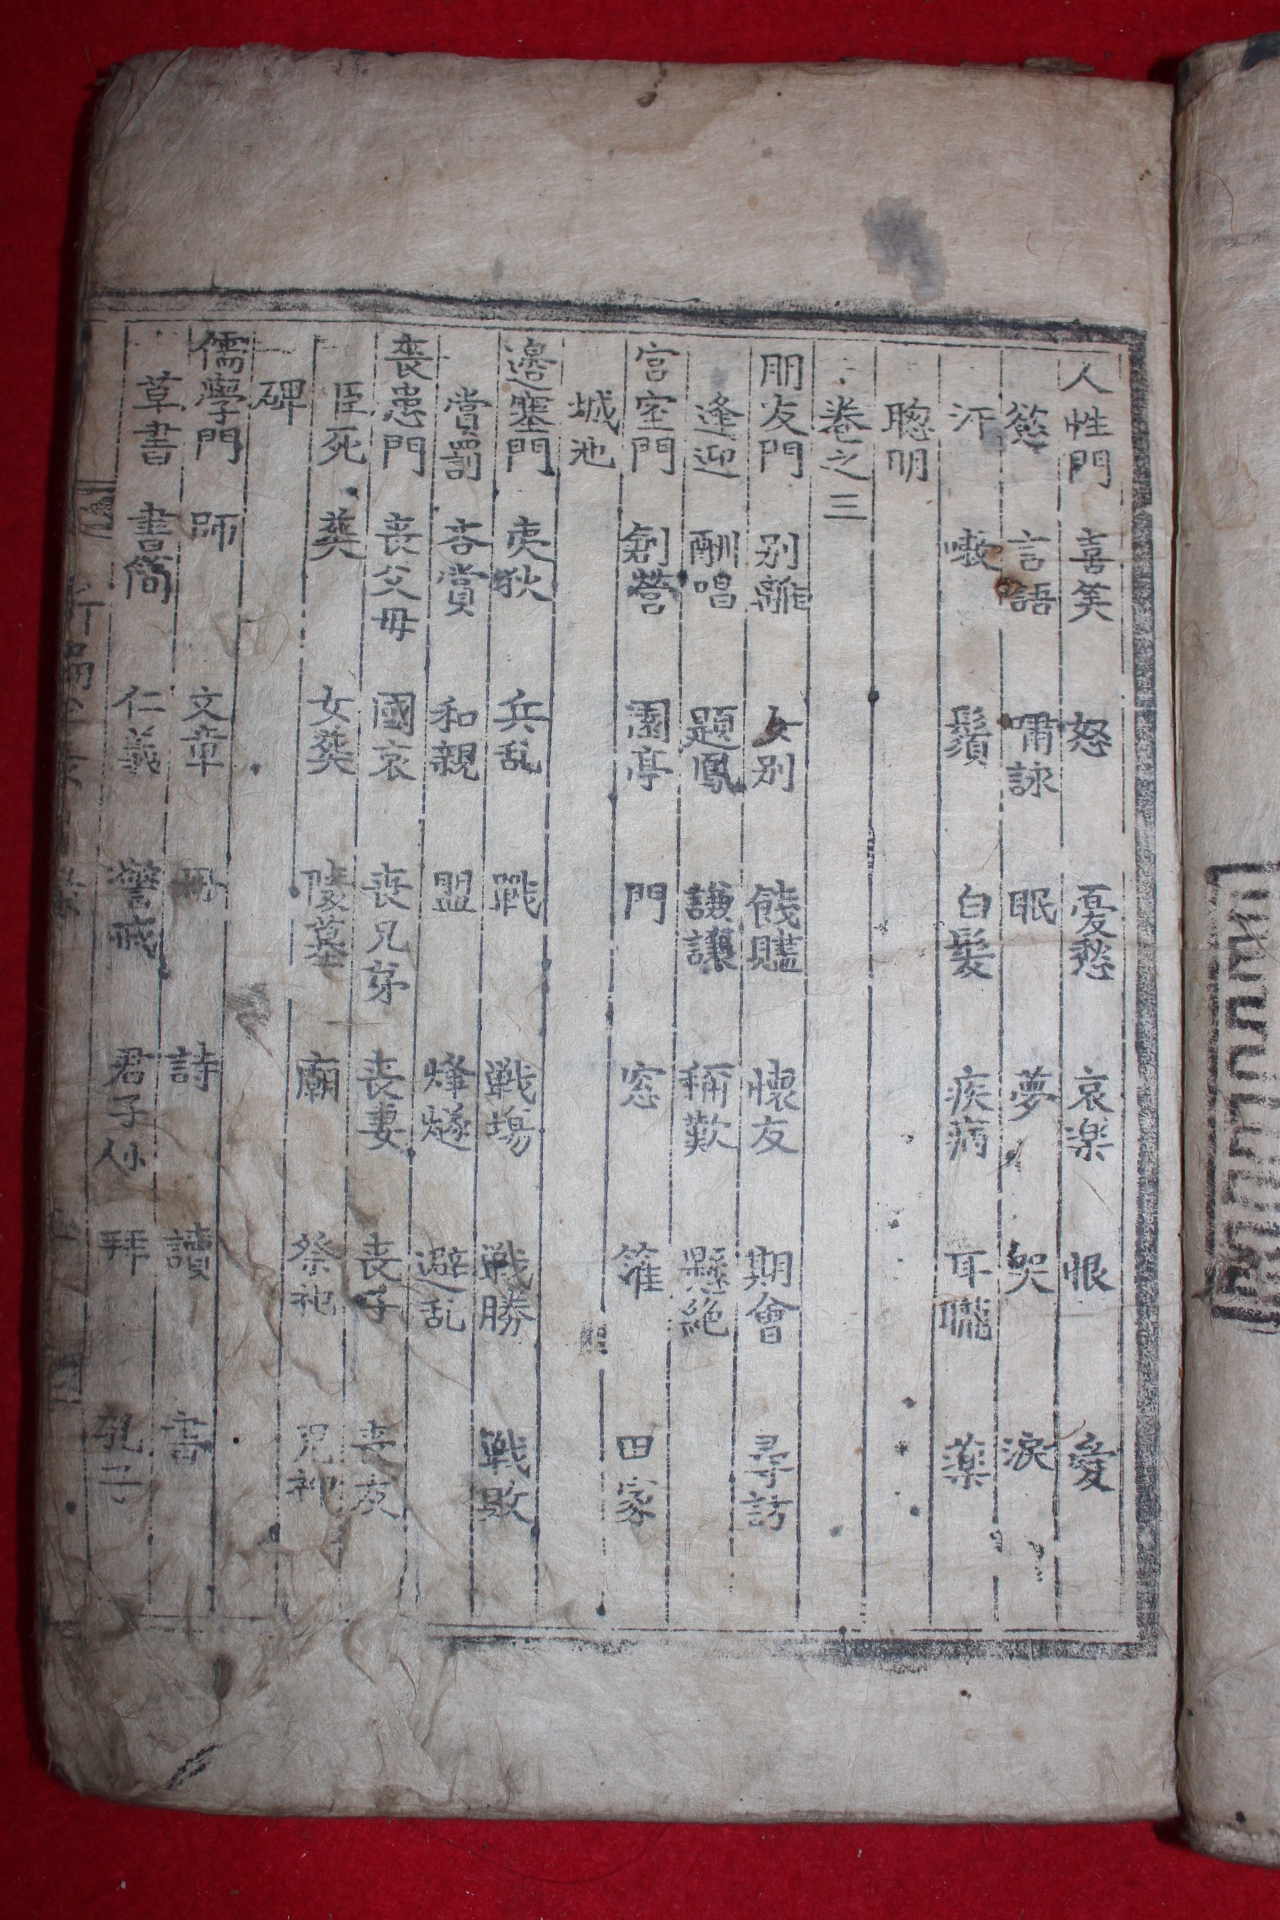 人性門 喜笑 怒 憂愁 哀楽 恨 愛
慾 言語 嘯詠 眠 夢 哭 淚
汗 鬚 白髮 疾病 耳聾 薬
聰明
卷之三
朋友門 别離 女别 餞贐 懐友 期會 尋訪
逢迎 酬唱 題鳳 謙讓 稱歎 懸絶
宫室門 創營 園亭 門 窓 籬 田家
城池
邊塞門 夷狄 兵乱 戰 戦場 戦勝 戦敗
賞罰 吝賞 和親 盟 烽燧 避乱
喪患門 丧父母 國哀 丧兄弟 丧妻 丧子 丧友
臣死 葬 女葬 陵墓 廟 祭祀 鬼神
碑
儒學門 師 文章 冊 詩 讀 書
草書 書简 仁義 警戒 君子小人 拜